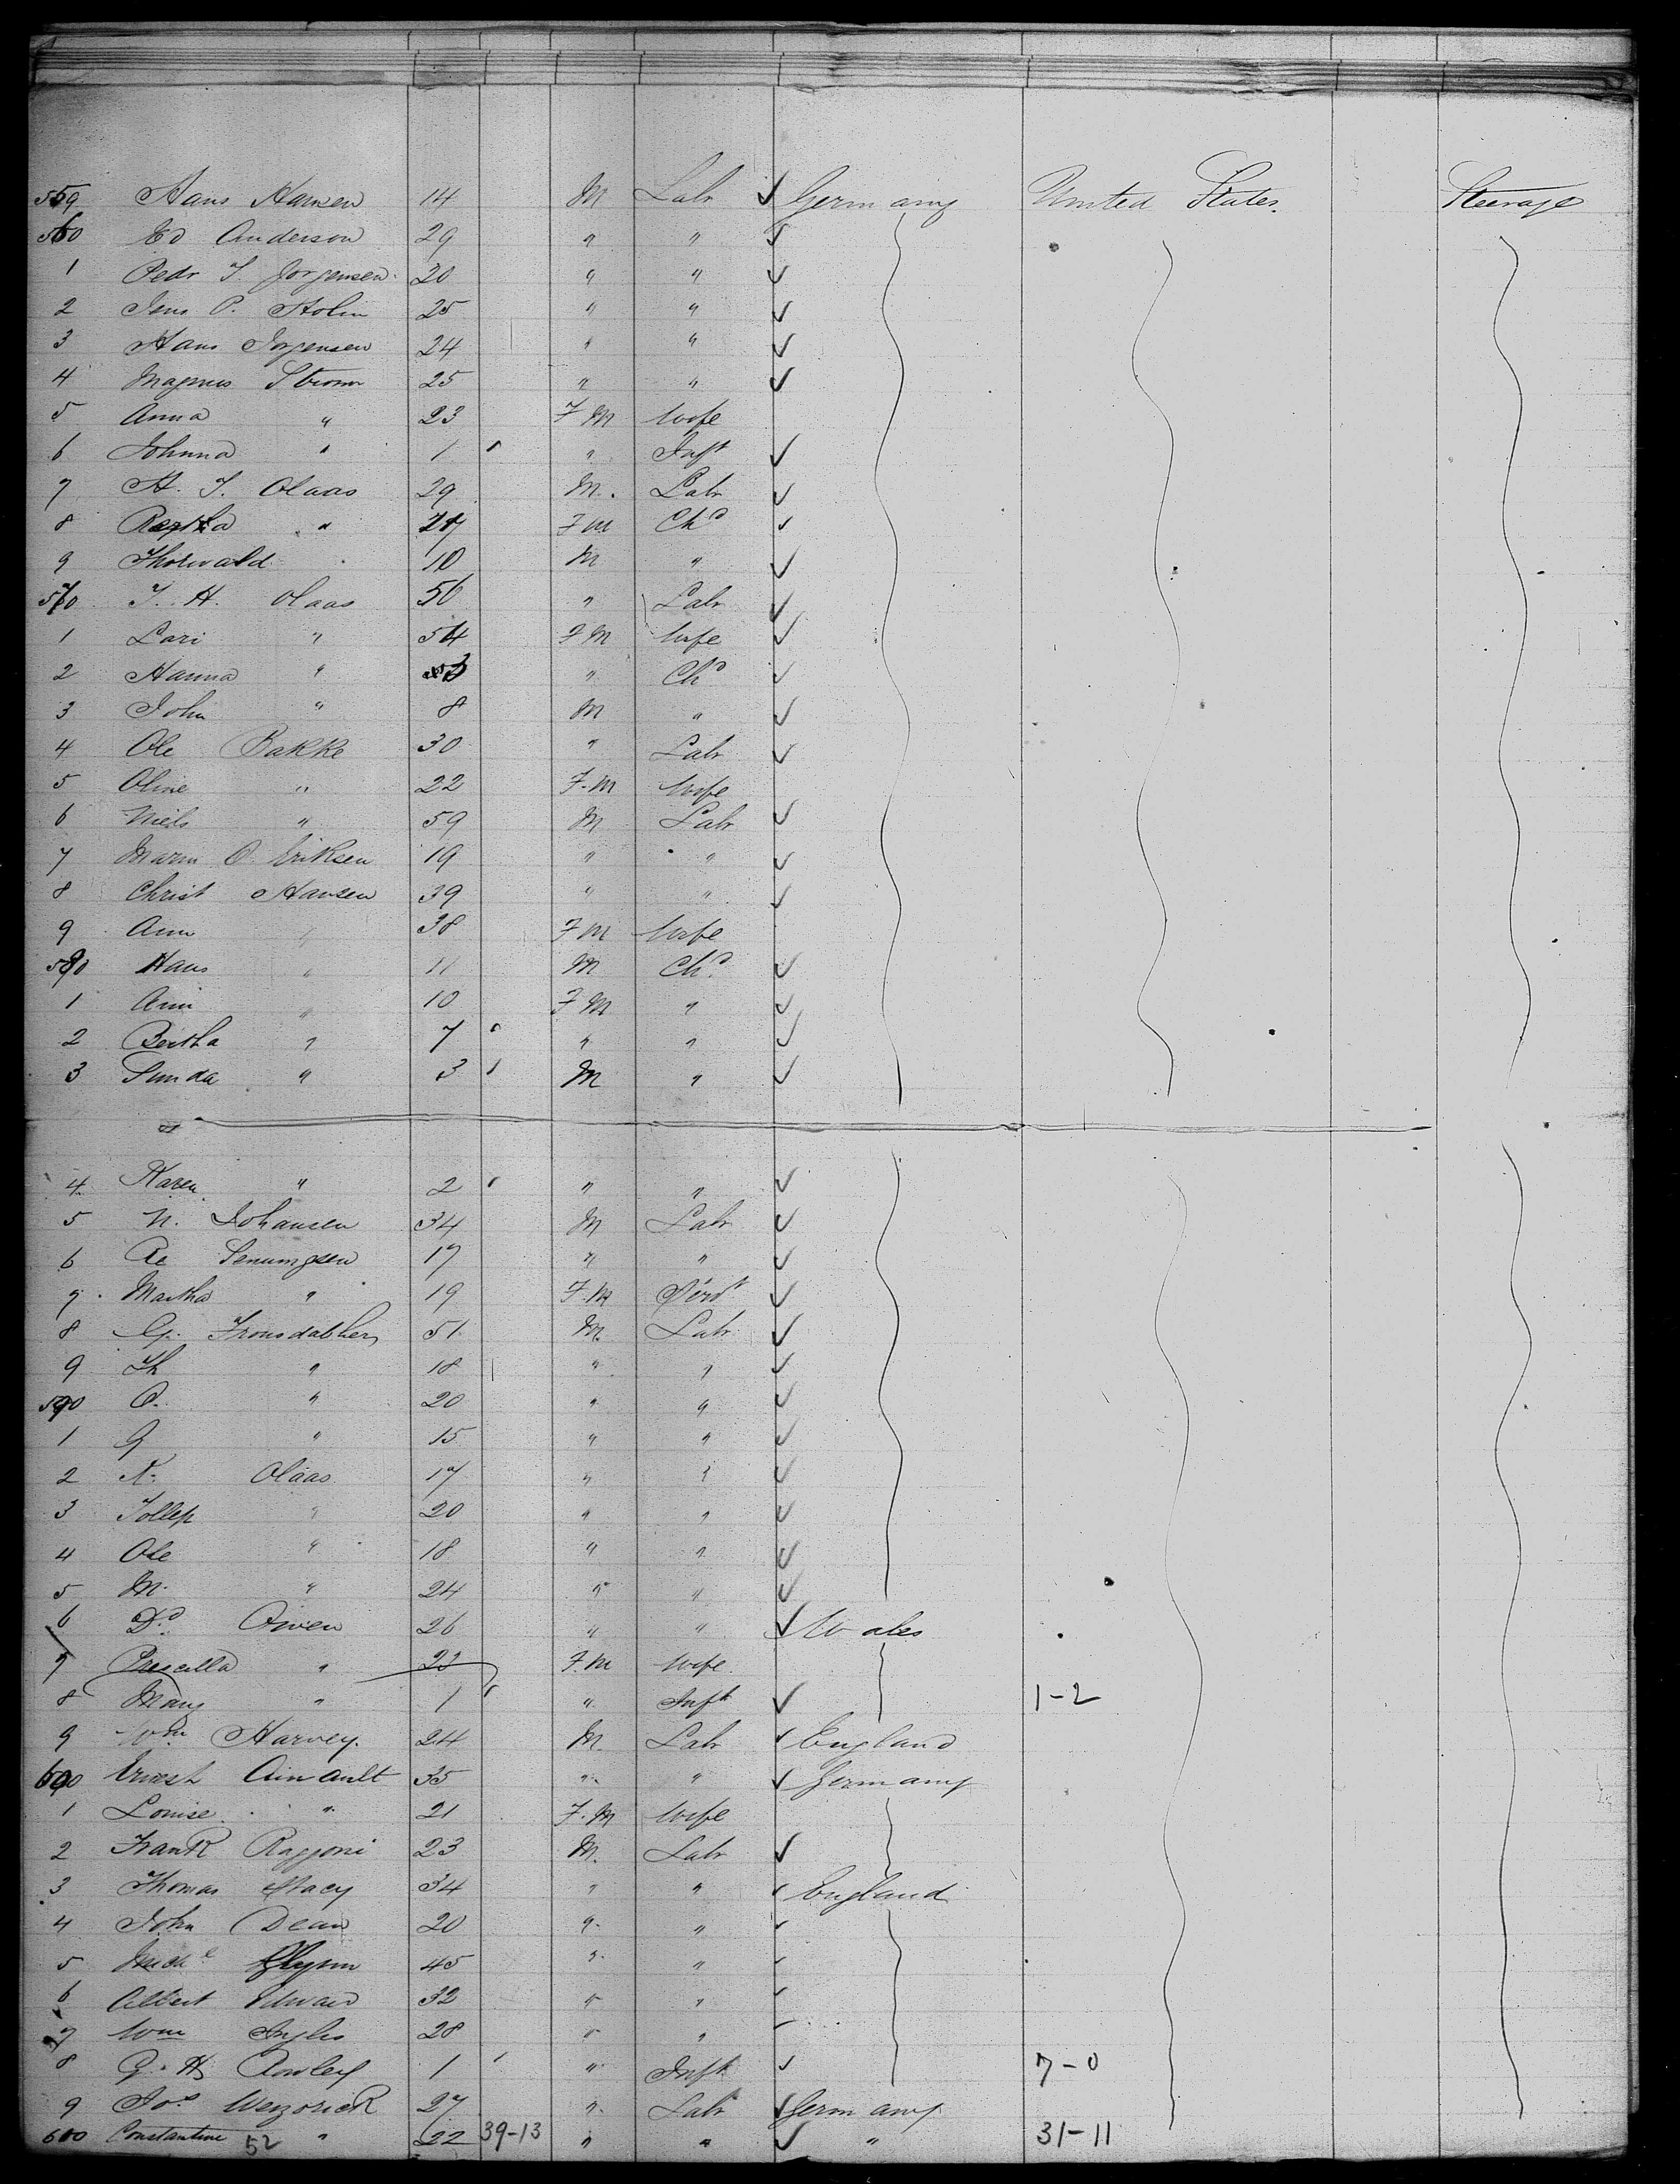 559 Hans Hansen 14 M Labr ✓ Germany United States. Steerage
560 Ed Anderson 29 " " ✓
1 Pedr J. Jorgensen 20 " " ✓
2 Jens P. Holm 25 " " ✓
3 Hans Jorgensen 24 " " ✓
4 Magnus Strom 25 " " ✓
5 Anna " 23 F M Wife
6 Johnna " 1 " Inft ✓
7 H. J. Olaas 29 M. Labr ✓
8 " F M Chd ✓
9 Thorwald 10 M " ✓
570 J. H. Olaas 56 " Labr ✓
1 Lari " 54 F M Wife ✓
2 Hanna " " Chd ✓
3 John " 8 M " ✓
4 Ole Bakke 30 " Labr ✓
5 Oline " 22 F. M Wife
6 Niels " 59 M Labr ✓
7 O. Eriksen 19 " " ✓
8 Christ Hansen 39 " " ✓
9 Ann " 38 F M Wife
580 Hans " 11 M Chd ✓
1 Ann " 10 F M " ✓
2 Bertha " 7 " " ✓
3 " 3 M " ✓
4 Karen " 2 " " ✓
5 N. Johansen 34 M Labr ✓
6 17 " " ✓
7 Martha " 19 F. M ✓
8 51 M. Labr ✓
9 Th " 18 " " ✓
590 O. " 20 " " ✓
1 G " 15 " " ✓
2 K. Olaas 17 " " ✓
3 Tollep " 20 " " ✓
4 Ole " 18 " " ✓
5 M. " 24 " " ✓
6 Dd Owen 26 " " ✓ Wales
7 Prescilla " 22 F. M Wife
8 Mary " 1 " Inft ✓ 1-2
9 Wm Harvey. 24 M. Labr ✓ England
600 35 " " ✓ Germany
1 Louise " 21 F. M Wife
2 Frank Raggoni 23 M. Labr ✓
3 Thomas Stacy 34 " " ✓ England
4 John Dean 20 " " ✓
5 Glynn 45 " " ✓
6 Albert Edward 32 " " ✓
7 Wm Ingles 28 " " ✓
8 G. H. Rowley 1 " Inft ✓ 7-0
9 Jos Wenzorick 27 " Labr ✓ Germany
610 Constantine " 22 39-13 " " ✓ " 31-11
52